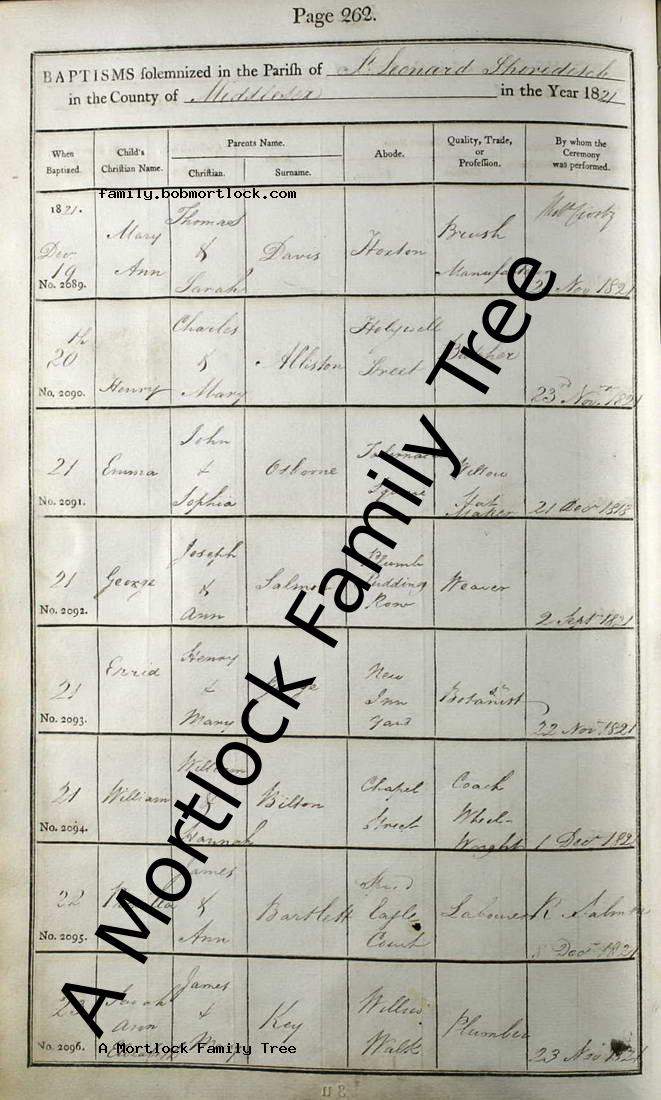 Page 262.
BAPTISMS solemnized in the Parish of St Leonard Shoreditch
in the County of Middlesex in the Year 1821
When Baptized. Child's Christian Name. Parents Name. Abode. Quality, Trade, or Profession. By whom the Ceremony was performed.
Christian. Surname.
family.bobmortlock.com
1821.
Decr 19 Mary Ann Thomas & Sarah Davis Hoxton Brush 21 Novr 1821
No. 2689.
20th Henry Charles & Mary Alliston Holywell Street Butcher 23rd Novr 1821
No. 2090.
21 Emma John & Sophia Osborne Square Willow Hat Maker 21 Decr 1818
No. 2091.
21 George Joseph & Ann Salmon Plumb Pudding Row Weaver 2 Sept 1821
No. 2092.
21 Henry & Mary New Inn Yard Botanist 22 Novr 1821
No. 2093.
21 William William & Hannah Bilton Chapel Street Coach Wheel Wright 1 Decr 1821
No. 2094.
22 James & Ann Bartlett Eagle Court Labourer Decr 1821
No. 2095.
23 Sarah Ann James & Key Willow Walk Plumber 23 Novr 1821
No. 2096.
A Mortlock Family Tree
A Mortlock Family Tree